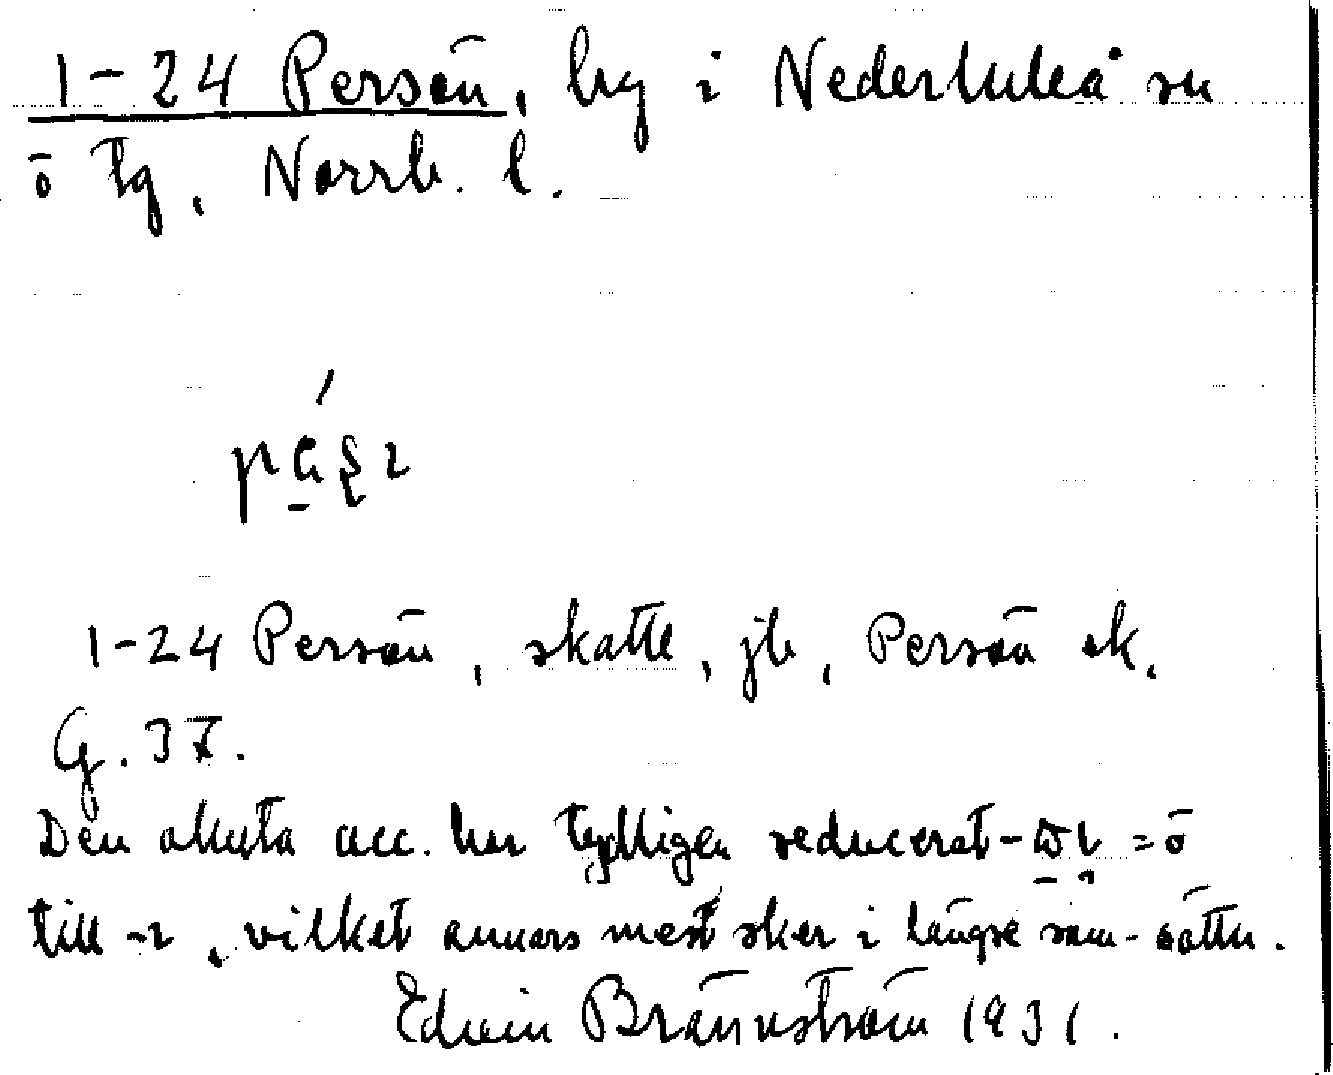 1-24 Persön, by i Nederluleå sn
ö tg, Norrb. l.
1-24 Persön, skatte, jb, Persön ek.
G. 37.
Den akuta acc. har tydligen reducerat - = ö
till -ı, vilket annars mest sker i längre sam-sättn.
Edvin Brännström 1931.